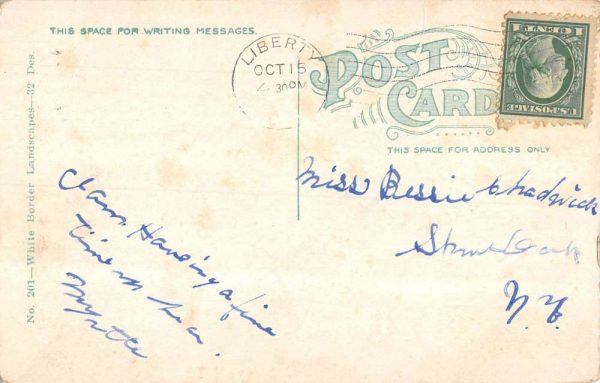 THIS SPACE FOR WRITING MESSAGES.
LIBERTY
OCT 15
30PM
POST
CARD
1 CENT 1
U.S.POSTAGE
THIS SPACE FOR ADDRESS ONLY
No. 201—White Border Landscapes—32 Des.
Miss Bessie Chadwick
N. Y.
Having a fine
time
Myrtle